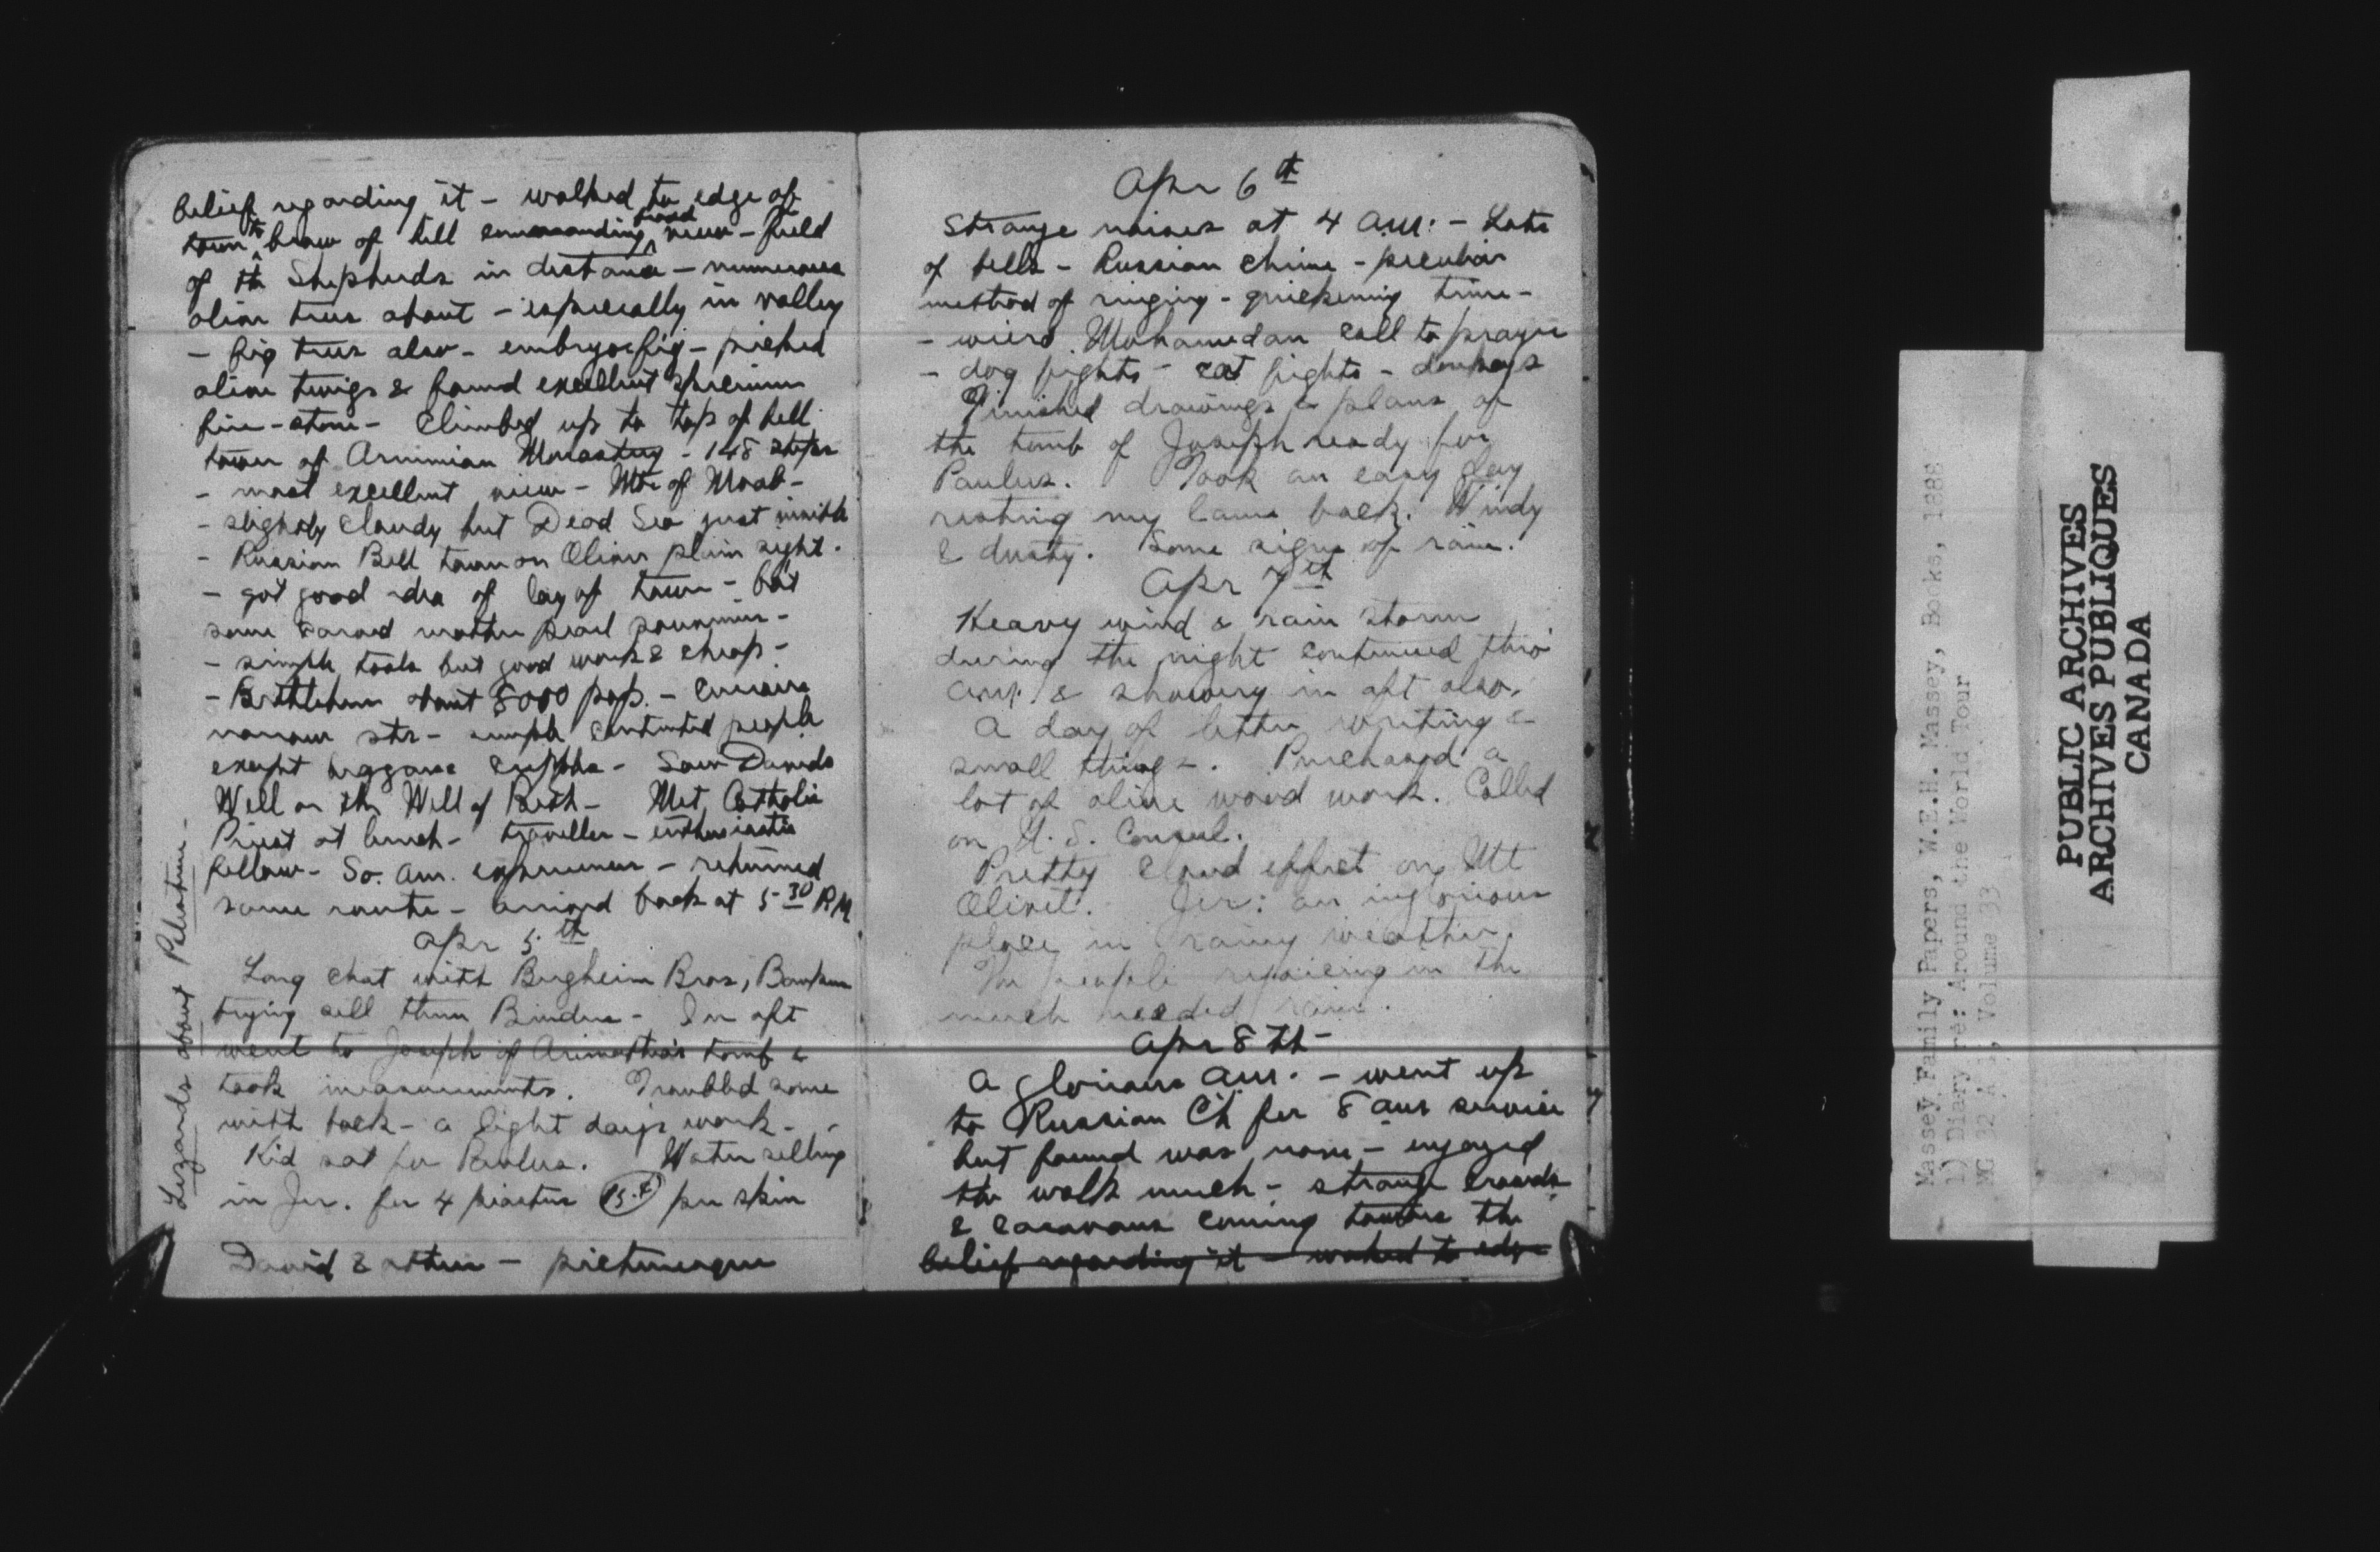 belief regarding it – walked to edge of
town to brow of hill commanding good view – field
of the Shepherds in distance – numerous
olive trees about – especially in valley
– fig trees also – embryo fig – picked
olive twigs & found excellent specimen
fire-stone – Climbed up to top of bell
tower of Arminian Monastery – 148 steps
– most excellent view – Mts of Moab –
– slightly cloudy but Dead Sea just visible
– Russian Bell tower on Olives plain sight.
– got good idea of lay of town – bo't
some carved mother pearl souvenirs –
– simple tools but good work & cheap –
– Bethlehem about 8000 pop. –
narrow sts – simple contented people
except beggars cripples – Saw Davids
Well or the Well of Beth – Met Catholic
Priest at lunch – traveller – enthusiastic
fellow – So. Am. experiences – returned
same route – arrived back at 5 30 P.M.
Apr 5th
Long chat with Bergheim Bros, Bankers
trying sell them Binders – In aft
went to Joseph of Arimathea's tomb &
took measurements. Troubled some
with back – a light day's work –
Kid sat for Paulus. Water selling
in Jer. for 4 piastres (15.¢) per skin
David & others – picturesque
Lizards about Palestine –
Apr 6th
Strange noises at 4 A.M: – Lots
of bells – Russian chime – peculiar
method of ringing – quickening time –
– wierd Mohamedan call to prayer
– dog fights – cat fights – donkeys
Finished drawings & plans of
the tomb of Joseph ready for
Paulus. Took an easy day
resting my lame back. Windy
& dusty. Some signs of rain.
Apr 7th
Heavy wind & rain storm
during the night continued thro'
A.M. & showery in aft also.
A day of letter writing &
small things. Purchased a
lot of olive wood work. Called
on U.S. Consul.
Pretty cloud effect on Mt
Olivet. Jer: an inglorious
place in rainy weather.
The people rejoicing in the
much needed rain.
Apr 8th –
A glorious A.M. – went up
to Russian Ch for 8 A.M. service
but found was none – enjoyed
the walk much – strange crowds
& caravans coming towards the
belief regarding it – walked to edge
Massey Family Papers, W.E.H. Massey, Books, 1888
1) Diary re: Around the World Tour
MG 32 A 1, Volume 33
PUBLIC ARCHIVES
ARCHIVES PUBLIQUES
CANADA